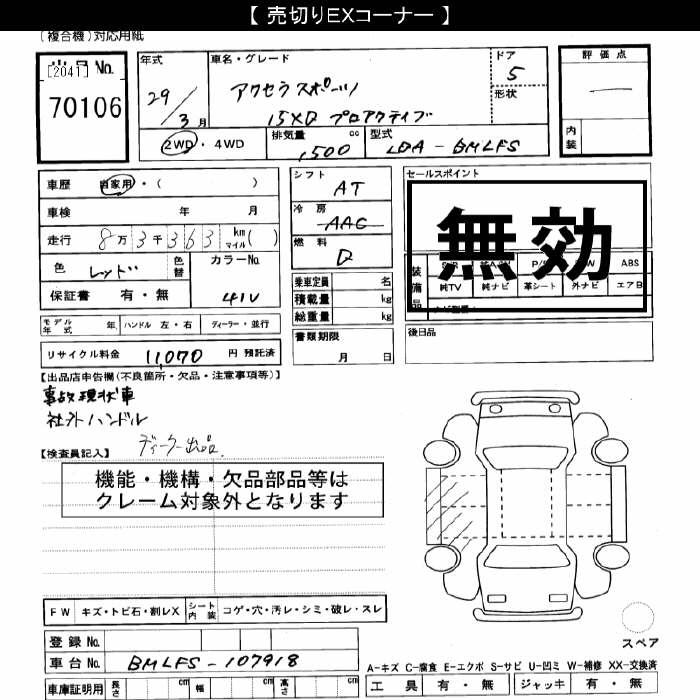 【 売切りEXコーナー 】
(複合機)対応用紙
[2041] No.
70106
年式
29/3月
車名・グレード
アクセラスポーツ
15XD プロアクティブ
ドア
5
形状
評価点
—
内装
2WD・4WD
排気量 1,500 cc
型式 LDA - BMLFS
車歴 自家用・( )
車検 年 月
走行 8万3千363 km マイル( )
色 レッド 色替
カラーNo. 41V
保証書 有・無
シフト AT
冷房 AAC
燃料 D
乗車定員 名
積載量 kg
総重量 kg
セールスポイント
無効
装備品
ABS
純TV 純ナビ 革シート 外ナビ エアB
モデル年式 年 ハンドル 左・右 ディーラー・並行
リサイクル料金 11,070 円 預託済
書類期限
月 日
後日品
【出品店申告欄(不良箇所・欠品・注意事項等)】
事故現状車
社外ハンドル
ディーラー出品
【検査員記入】
機能・機構・欠品部品等は
クレーム対象外となります
FW キズ・トビ石・割レX シート内装 コゲ・穴・汚レ・シミ・破レ・スレ
登録 No.
車台 No. BMLFS - 107918
車庫証明用 長さ cm 幅 cm 高さ cm
スペア
A-キズ C-腐食 E-エクボ S-サビ U-凹ミ W-補修 XX-交換済
工具 有・無 ジャッキ 有・無